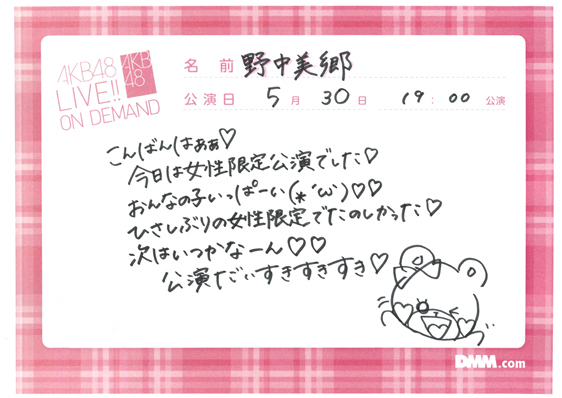 AKB48
LIVE!!
ON DEMAND
AKB
48
名 前 野中美郷
公演日 5月 30日 19:00 公演
こんばんはぁぁ♡
今日は女性限定公演でした♡
おんなの子いっぱーい(*´ω`)♡♡
ひさしぶりの女性限定でたのしかった♡
次はいつかなーん♡♡
公演だぃすきすきすき♡
DMM.com